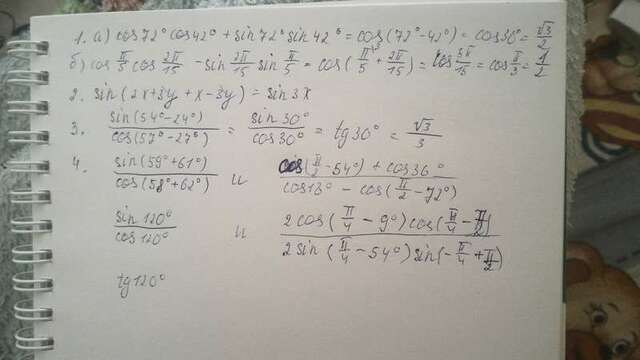 1. а) cos72° cos42° + sin72° sin42° = cos(72°-42°) = cos30° = √3/2
б) cos π/5 cos 2π/15 - sin 2π/15 sin π/5 = cos(π/5 + 2π/15) = cos 5π/15 = cos π/3 = 1/2
2. sin(2x+3y + x-3y) = sin3x
3. sin(54°-24°)/cos(57°-27°) = sin30°/cos30° = tg30° = √3/3
4. sin(59°+61°)/cos(58°+62°) и cos(π/2-54°)+cos36°/cos18°-cos(π/2-72°)
sin120°/cos120° и 2cos(π/4-9°)cos(π/4-)/2sin(π/4-54°)sin(-π/4+)
tg120°